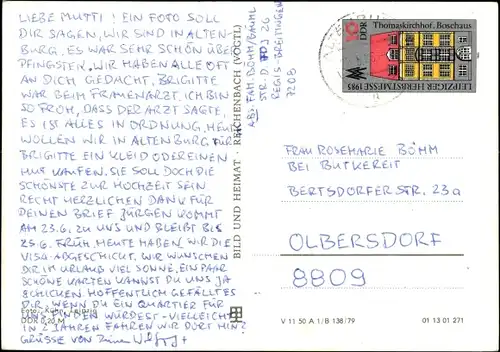 LIEBE MUTTI! EIN FOTO SOLL
DIR SAGEN, WIR SIND IN ALTEN-
BURG. ES WAR SEHR SCHÖN ÜBER
PFINGSTEN. WIR HABEN ALLE OFT
AN DICH GEDACHT. BRIGITTE
WAR BEIM FRAUENARZT. ICH BIN
SO FROH, DASS DER ARZT SAGTE,
ES IST ALLES IN ORDNUNG. HEUTE
WOLLEN WIR IN ALTENBURG FÜR
BRIGITTE EIN KLEID ODER EINEN
HUT KAUFEN. SIE SOLL DOCH DIE
SCHÖNSTE ZUR HOCHZEIT SEIN
RECHT HERZLICHEN DANK FÜR
DEINEN BRIEF JÜRGEN KOMMT
AM 23.6. ZU UNS UND BLEIBT BIS
25.6. FRÜH. HEUTE HABEN WIR DIE
VISA ABGESCHICKT. WIR WÜNSCHEN
DIR IM URLAUB VIEL SONNE. EIN PAAR
SCHÖNE KARTEN KANNST DU UNS JA
SCHICKEN HOFFENTLICH GEFÄLLT ES
DIR, WENN DU EIN QUARTIER FÜR
UNS FINDEN WÜRDEST - VIELLEICHT
IN 2 JAHREN FAHREN WIR DORT HIN?
GRÜSSE VON
Leipzig
DDR 0,20 M
BILD UND HEIMAT · REICHENBACH (VOGTL)
ABS. FAM. BÖHM
REGIS-BREITINGEN
7205
DDR
10
Thomaskirchhof, Bosehaus
LEIPZIGER HERBSTMESSE 1985
FRAU ROSEMARIE BÖHM
BEI BUTKEREIT
BERTSDORFER STR. 23a
OLBERSDORF
8809
V 11 50 A 1/B 138/79
01 13 01 271